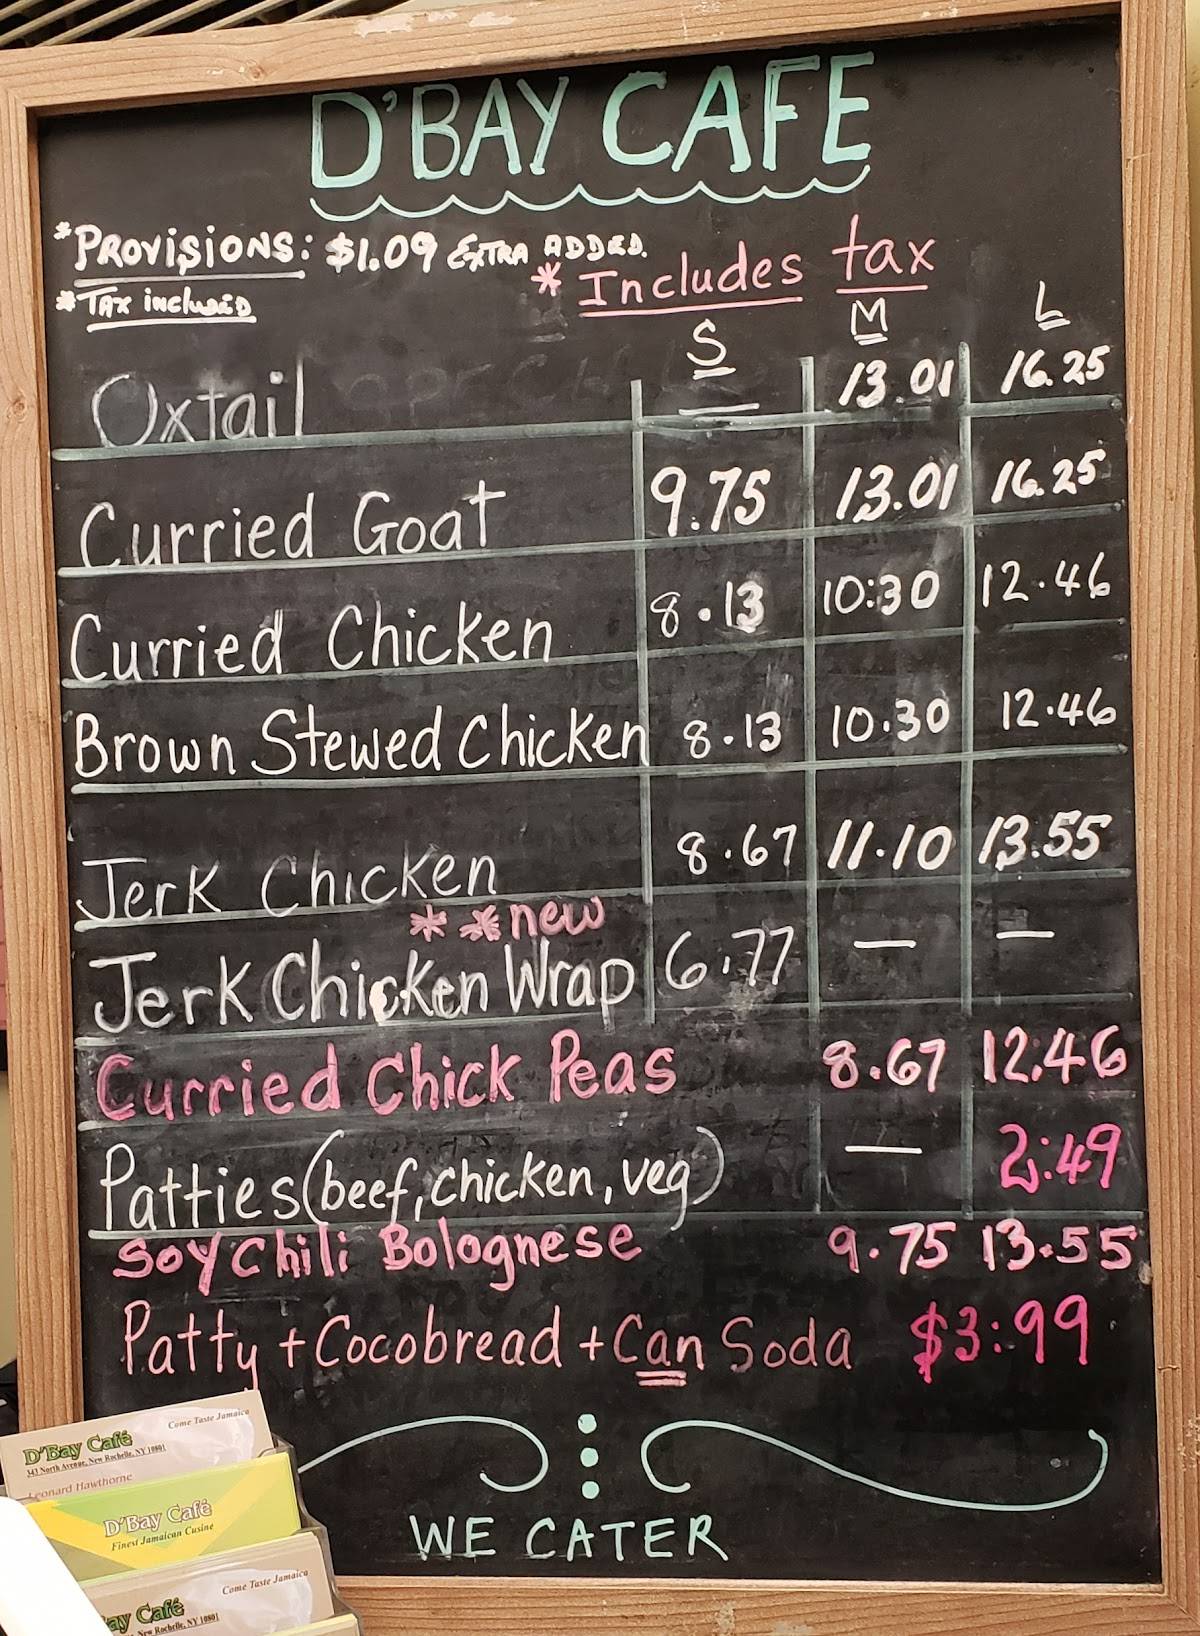 D'BAY CAFE
*PROVISIONS: $1.09 EXTRA ADDED.
*TAX incluDED
* Includes tax
S M L
Oxtail — 13.01 16.25
Curried Goat 9.75 13.01 16.25
Curried Chicken 8.13 10:30 12.46
Brown Stewed Chicken 8.13 10.30 12.46
Jerk Chicken 8.67 11.10 13.55
* * new
Jerk Chicken Wrap 6.77 — —
Curried Chick Peas 8.67 12:46
Patties (beef, chicken, veg) — 2:49
Soy Chili Bolognese 9.75 13.55
Patty + Cocobread + Can Soda $3:99
WE CATER
Come Taste Jamaica
D'Bay Café
343 North Avenue, New Rochelle, NY 10801
Leonard Hawthorne
D'Bay Café
Finest Jamaican Cusine
Come Taste Jamaica
ay Café
New Rochelle, NY 10801